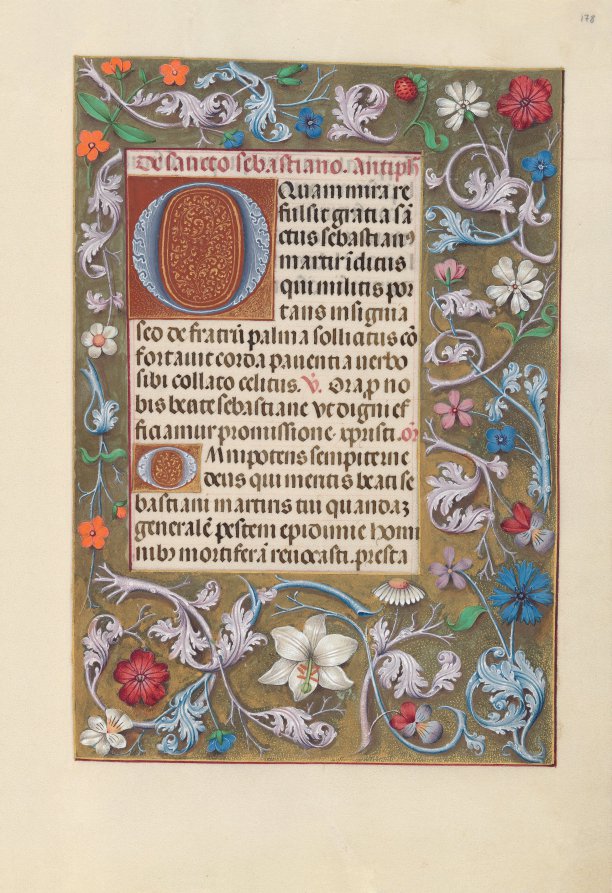 178
De sancto sebastiano. Antiph̄
O Quam mira re
fulsit gratia sā
ctus sebastianus
martir īclitus
qui militis por
tans insignia
sed de fratrū palma sollicitus cō
fortavit corda paventia verbo
sibi collato celitus. V̄. Ora p no
bis beate sebastiane vt digni ef
ficiamur promissione xpristi. or̄
Omnipotens sempiterne
deus qui meritis beati se
bastiani martiris tui quandaꝫ
generalē pestem epidimie homi
nibꝫ mortiferā revocasti. presta